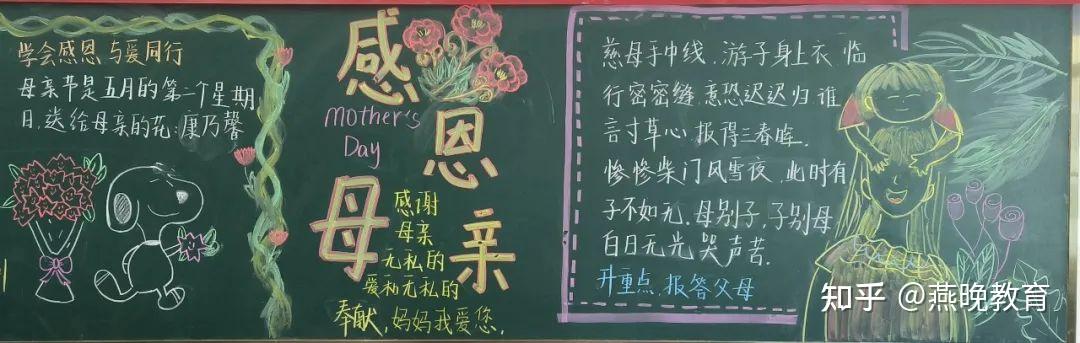 学会感恩 与爱同行
母亲节是五月的第二个星期
日,送给母亲的花:康乃馨
感恩母亲
mother's
Day
感谢
母亲
无私的
爱和无私的
奉献,妈妈我爱您,
慈母手中线,游子身上衣 临
行密密缝,意恐迟迟归 谁
言寸草心,报得三春晖.
惨惨柴门风雪夜,此时有
子不如无.母别子,子别母
白日无光 哭声苦.
升重点,报答父母
知乎 @燕晚教育